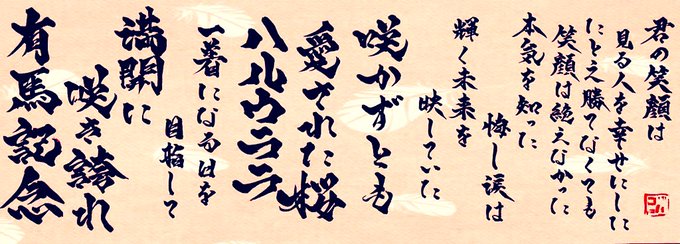 君の笑顔は
見る人を幸せにした
たとえ勝てなくても
笑顔は絶えなかった
本気を知った
悔し涙は
輝く未来を
映していた
咲かずとも
愛された桜
ハルウララ
一着になる日を
目指して
満開に
咲き誇れ
有馬記念